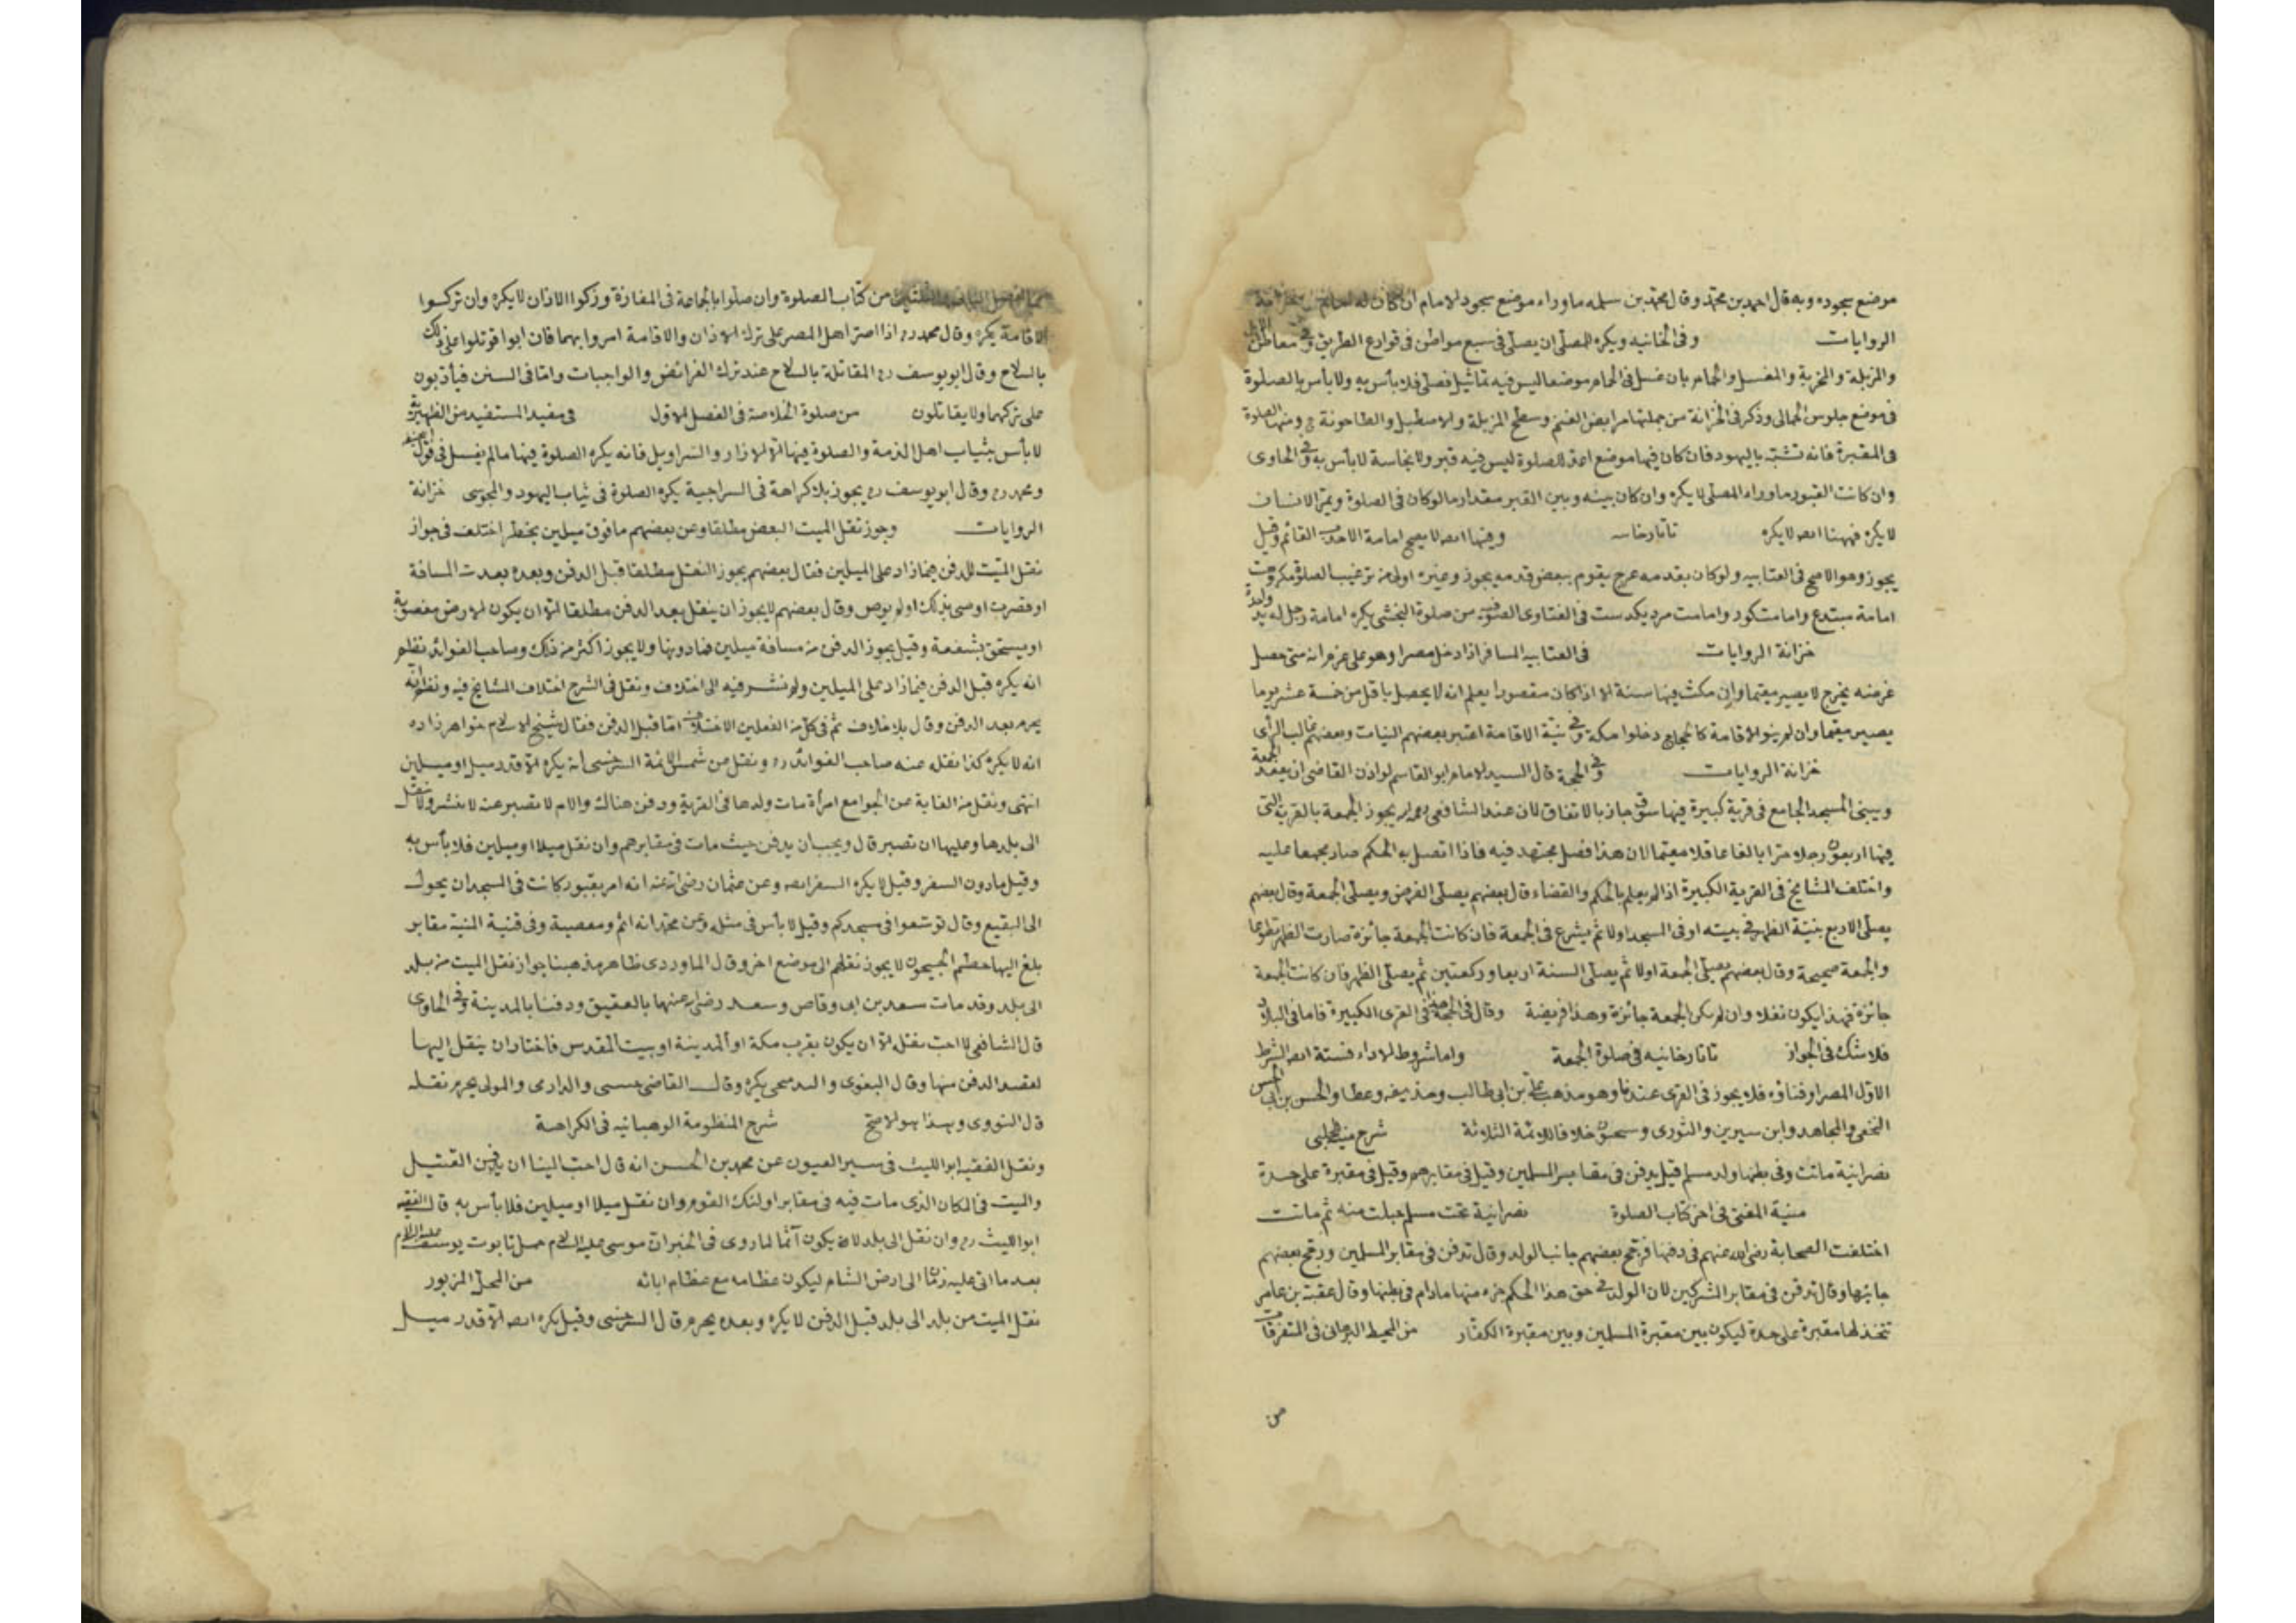 موضع سجوده وبه قال احمد بن محمد وقال محمد بن سلمه ماوراء موضع سجود الامام ان كان له
الروايات وفى الخانيه ويكره للمصلى ان يصلى فى سبع مواطن فى قوارع الطريق وفى معاطن الابل
والمزبلة والمخرية والمغسل والحمام بان غسل فى الحمام موضعا ليس فيه تماثيل فصلى فلا بأس به ولا بأس بالصلوة
فى موضع جلوس الحمامى وذكر فى الخزانة من جملتها مرابض الغنم وسطح المزبلة والاصطبل والطاحونة ومنها الصلوة
فى المقبرة فانه تشبّه باليهود فان كان فيها موضع اعدّ للصلوة ليس فيه قبر ولا نجاسة لا بأس به وفى الحاوى
وان كانت القبور ماوراء المصلى لا يكره وان كان بينه وبين القبر مقدار مالو كان فى الصلوة ويمرّ الانسان
لا يكره فههنا ايضا لا يكره تاتارخانيه ومنها ايضا لا يصح امامة الاحدب القائم وقيل
يجوز وهو الاصح فى العتابيه ولو كان بقدمه عرج يقوم ببعض قدمه يجوز وغيره اولى من ترغيب الصلوة
امامة مبتدع وامامت مرد يكدست فى الفتاوى الصوفيه من صلوة النخشبى يكره امامة رجل له يد واحدة
خزانة الروايات فى العتابيه المسافر اذا دخل مصرا وهو على عزم انه متى حصل
غرضه يخرج لا يصير مقيما وان مكث فيها سنة الا اذا كان مقصودا يعلم انه لا يحصل باقل من خمسة عشر يوما
يصير مقيما وان لم ينو الاقامة كالحجاج دخلوا مكة وفى نيّة الاقامة اعتبر بعضهم النيات وبعضهم غالب الرأى
خزانة الروايات وفى الحجة قال السيد الامام ابو القاسم لو اذن القاضى ان يعقد الجمعة
ويبنى المسجد الجامع فى قرية كبيرة فيها سوق جاز بالاتفاق لان عند الشافعى رحمه الله يجوز الجمعة بالقرية التى
فيها اربعون رجلا حرّا بالغا عاقلا مقيما لان هذا فصل مجتهد فيه فاذا اتصل به الحكم صار مجمعا عليه
واختلف المشايخ فى القرية الكبيرة اذا لم يعلم بالحكم والقضاء قال بعضهم يصلى الفرض ويصلى الجمعة وقال بعضهم
يصلى الاربع بنيّة الظهر فى بيته او فى المسجد اولا ثم يشرع فى الجمعة فان كانت الجمعة جائزة صارت الظهر تطوعا
والجمعة صحيحة وقال بعضهم يصلى الجمعة اولا ثم يصلى السنة اربعا وركعتين ثم يصلى الظهر فان كانت الجمعة
جائزة فهذا يكون نفلا وان لم يكن الجمعة جائزة وهذا فريضة وقال فى الحجة هذا فى القرى الكبيرة فاما فى البلاد
فلا شك فى الجواز تاتارخانيه فى صلوة الجمعة واما شروط الاداء فستة ايضا الشرط
الاوّل المصر او فناؤه فلا يجوز فى القرى عندنا وهو مذهب علىّ بن ابى طالب وحذيفه وعطا والحسن بن ابى الحسن
النخعى والمجاهد وابن سيرين والثورى وسحنون خلافا للائمة الثلاثة شرح منية حلبى
نصرانية ماتت وفى بطنها ولد مسلم قيل يدفن فى مقابر المسلمين وقيل فى مقابرهم وقيل فى مقبرة على حدة
منية المفتى فى اخر كتاب الصلوة نصرانية تحت مسلم حبلت منه ثم ماتت
اختلفت الصحابة رضى الله عنهم فى دفنها فرجّح بعضهم جانب الولد وقال تدفن فى مقابر المسلمين ورجّح بعضهم
جانبها وقال تدفن فى مقابر المشركين لان الولد فى حق هذا الحكم جزء منها مادام فى بطنها وقال عقبة بن عامر
تتخذ لها مقبرة على حدة ليكون بين مقبرة المسلمين وبين مقبرة الكفّار من المحيط البرهانى فى المتفرقات
من
من كتاب الصلوة وان صلوا بالجماعة فى المفازة وتركوا الاذان لا يكره وان تركوا
الاقامة يكره وقال محمد ره اذا اصرّ اهل المصر على ترك الاذان والاقامة امروا بهما فان ابوا قوتلوا على ذلك
بالسلاح وقال ابو يوسف ره المقاتلة بالسلاح عند ترك الفرائض والواجبات وامّا فى السنن فيأدّبون
على تركهما ولا يقاتلون من صلوة الخلاصة فى الفصل الاول فى مفيد المستفيد من الظهيرية
لا بأس بثياب اهل الذمة والصلوة فيها الّا الازار والسراويل فانه يكره الصلوة فيها مالم يغسل فى قول ابى حنيفة
ومحمد ره وقال ابو يوسف ره يجوز بلا كراهة فى السراجية يكره الصلوة فى ثياب اليهود والمجوسى خزانة
الروايات وجوّز نقل الميت البعض مطلقا وعن بعضهم مافوق ميلين يحظر اختلف فى جواز
نقل الميّت للدفن فيما زاد على الميلين فقال بعضهم يجوز النقل مطلقا قبل الدفن وبعده بعدت المسافة
او قصرت اوصى بذلك او لم يوص وقال بعضهم لا يجوز ان ينقل بعد الدفن مطلقا الّا ان يكون الارض مغصوبة
او يستحق بشفعة وقيل يجوز الدفن من مسافة ميلين فما دونها ولا يجوز اكثر من ذلك وصاحب الفوائد نظم
انه يكره قبل الدفن فيما زاد على الميلين ولم نشر فيه الى اختلاف ونقل فى الشرح اختلاف المشايخ فيه ونظم انّه
يحرم بعد الدفن وقال بلا خلاف ثم فى كل من الفعلين الاختلاف امّا قبل الدفن فقال شيخ الاسلام خواهر زاده
انه لا يكره كذا نقله عنه صاحب الفوائد ره ونقل عن شمس الائمة السرخسى انه يكره الّا قدر ميل او ميلين
انتهى ونقل من الغاية عن الجوامع امرأة مات ولدها فى القرية ودفن هناك والام لا تصبر عنه لا ينشر ولا ينقل
الى بلدها وعليها ان تصبر قال ويجب ان يدفن حيث مات فى مقابرهم وان نقل ميلا او ميلين فلا بأس به
وقيل مادون السفر وقيل لا يكره السفر ايضا وعن عثمان رضى الله عنه انه امر بقبور كانت فى المسجد ان يحول
الى البقيع وقال توسّعوا فى مسجدكم وقيل لا بأس فى مثله وعن محمد انه اثم ومعصية وفى قنية المنية مقابر
بلغ اليها حطم الجيحون لا يجوز نقلهم الى موضع اخر وقال الماوردى ظاهر مذهبنا جواز نقل الميت من بلد
الى بلد وقد مات سعد بن ابى وقاص وسعد رضى الله عنهما بالعقيق ودفنا بالمدينة وفى الحاوى
قال الشافعى لا احبّ نقله الّا ان يكون بقرب مكة او المدينة او بيت المقدس فاختار ان ينقل اليها
لقصد الدفن منها وقال البغوى والبندنيجى يكره وقال القاضى حسين والدارى والمولى يحرم نقله
قال النووى وهذا هو الاصح شرح المنظومة الوهبانيه فى الكراهة
ونقل الفقيه ابو الليث فى سير العيون عن محمد بن الحسن انه قال احبّ الينا ان يدفن القتيل
والميت فى المكان الذى مات فيه فى مقابر اولئك القوم وان نقل ميلا او ميلين فلا بأس به قال الفقيه
ابو الليث ره وان نقل الى بلد لا يكون آثما لما روى فى الخبر ان موسى عليه السلام حمل تابوت يوسف عليه السلام
بعد ما اتى عليه زمان الى ارض الشام ليكون عظامه مع عظام ابائه من المحل المزبور
نقل الميت من بلد الى بلد قبل الدفن لا يكره وبعده يحرم قال السرخسى وقيل يكره ايضا الّا قدر ميل